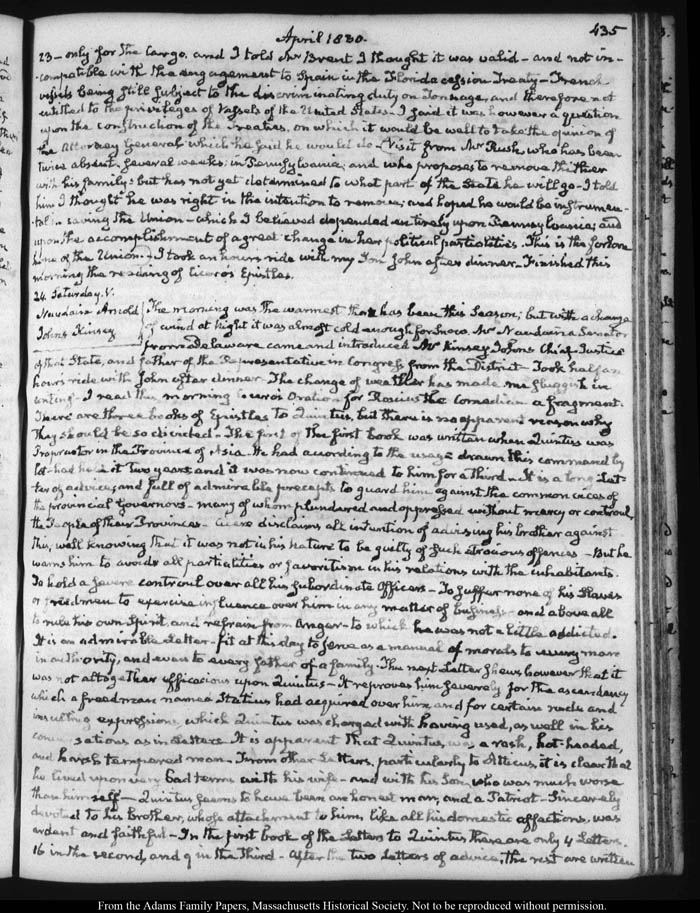 April 1830.
435
23 - only for the Cargo. and I told Mr Brent I thought it was valid - and not in-
-compatible with the engagement to Spain in the Florida cession Treaty - French
vessels being still subject to the discriminating duty on Tonnage, and therefore not
entitled to the privileges of Vessels of the United States. I said it was however a question
upon the construction of the Treaties, on which it would be well to take the opinion of
the Attorney General which he said he would do - Visit from Mr Rush, who has been
twice absent, several weeks in Pennsylvania, and who proposes to remove thither
with his family; but has not yet determined to what part of the State he will go - I told
him I thought he was right in the intention to remove; and hoped he would be instrumen-
tal in saving the Union - which I believed depended entirely upon Pennsylvania; and
upon the accomplishment of a great change in her political partialities. This is the forlorn
hope of the Union. I took an hours ride with my Son John after dinner - Finished this
morning the reading of Cicero's Epistles.
24 Saturday. V.
Naudain Arnold
Johns Kinsey
The morning was the warmest that has been this Season; but with a change
of wind at Night it was almost cold enough for snow. Mr Naudain a Senator
from Delaware came and introduced Mr Kinsey Johns Chief Justice
of that State, and father of the Representative in Congress from the District - Took half an
hours ride with John after dinner. The change of weather has made me sluggish in
writing - I read this morning Cicero's Oration for Roscius the Comedian a fragment.
There are three books of Epistles to Quintus, but there is no apparent reason why
they should be so divided - The first of the first book was written when Quintus was
Propraetor in the Province of Asia - He had according to the usage drawn this command by
lot - had held it two years, and it was now continued to him for a third - It is a long Let-
ter of advice; and full of admirable precepts to guard him against the common vices of
the provincial Governors - many of whom plundered and oppressed without mercy or controul,
the People of their Provinces - Cicero disclaims all intention of advising his brother against
this, well knowing that it was not in his nature to be guilty of such atrocious offences - But he
warns him to avoid all partialities or favoritism in his relations with the inhabitants.
To hold a severe controul over all his subordinate Officers - To suffer none of his Slaves
or freedmen to exercise influence over him in any matter of business - and above all
to rule his own Spirit, and refrain from Anger - to which he was not a little addicted.
It is an admirable Letter - fit at this day to serve as a manual of morals to every man
in authority, and even to every father of a family. The next Letter shews however that it
was not altogether efficacious upon Quintus - It reproves him severely for the ascendancy
which a freedman named Statius had acquired over him and for certain rude and
insulting expressions, which Quintus was charged with having used, as well in his
conversations as in Letters. It is apparent that Quintus, was a rash, hot-headed,
and harsh tempered man - From other Letters, particularly to Atticus, it is clear that
he lived upon very bad terms with his wife - and with his Son, who was much worse
than himself - Quintus seems to have been an honest man, and a Patriot - Sincerely
devoted to his brother, whose attachment to him, like all his domestic affections, was
ardent and faithful - In the first book of the Letters to Quintus there are only 4 Letters.
16 in the second, and 9 in the third - After the two Letters of advice, the rest are written
From the Adams Family Papers, Massachusetts Historical Society. Not to be reproduced without permission.